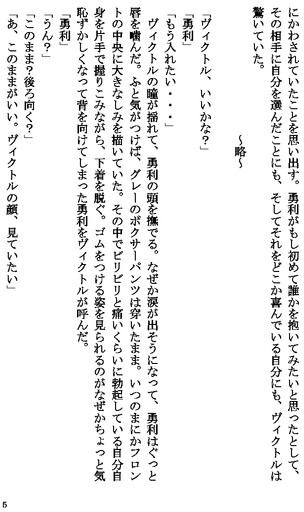 にかわされていたことを思い出す。勇利がもし初めて誰かを抱いてみたいと思ったとして、
その相手に自分を選んだことにも、そしてそれをどこか喜んでいる自分にも、ヴィクトルは
驚いていた。
～略～
「ヴィクトル、いいかな？」
「勇利」
「もう入れたい・・・」
ヴィクトルの瞳が揺れて、勇利の頭を撫でる。なぜか涙が出そうになって、勇利はぐっと
唇を噛んだ。ふと気がつけば、グレーのボクサーパンツは穿いたまま。いつのまにかフロン
トの中央に大きなしみを描いていた。その中でビリビリと痛いくらいに勃起している自分自
身を片手で握りこみながら、下着を脱ぐ。ゴムをつける姿を見られるのがなぜかちょっと気
恥ずかしくなって背を向けてしまった勇利をヴィクトルが呼んだ。
「勇利」
「うん？」
「このまま？後ろ向く？」
「あ、このままがいい。ヴィクトルの顔、見ていたい」
5